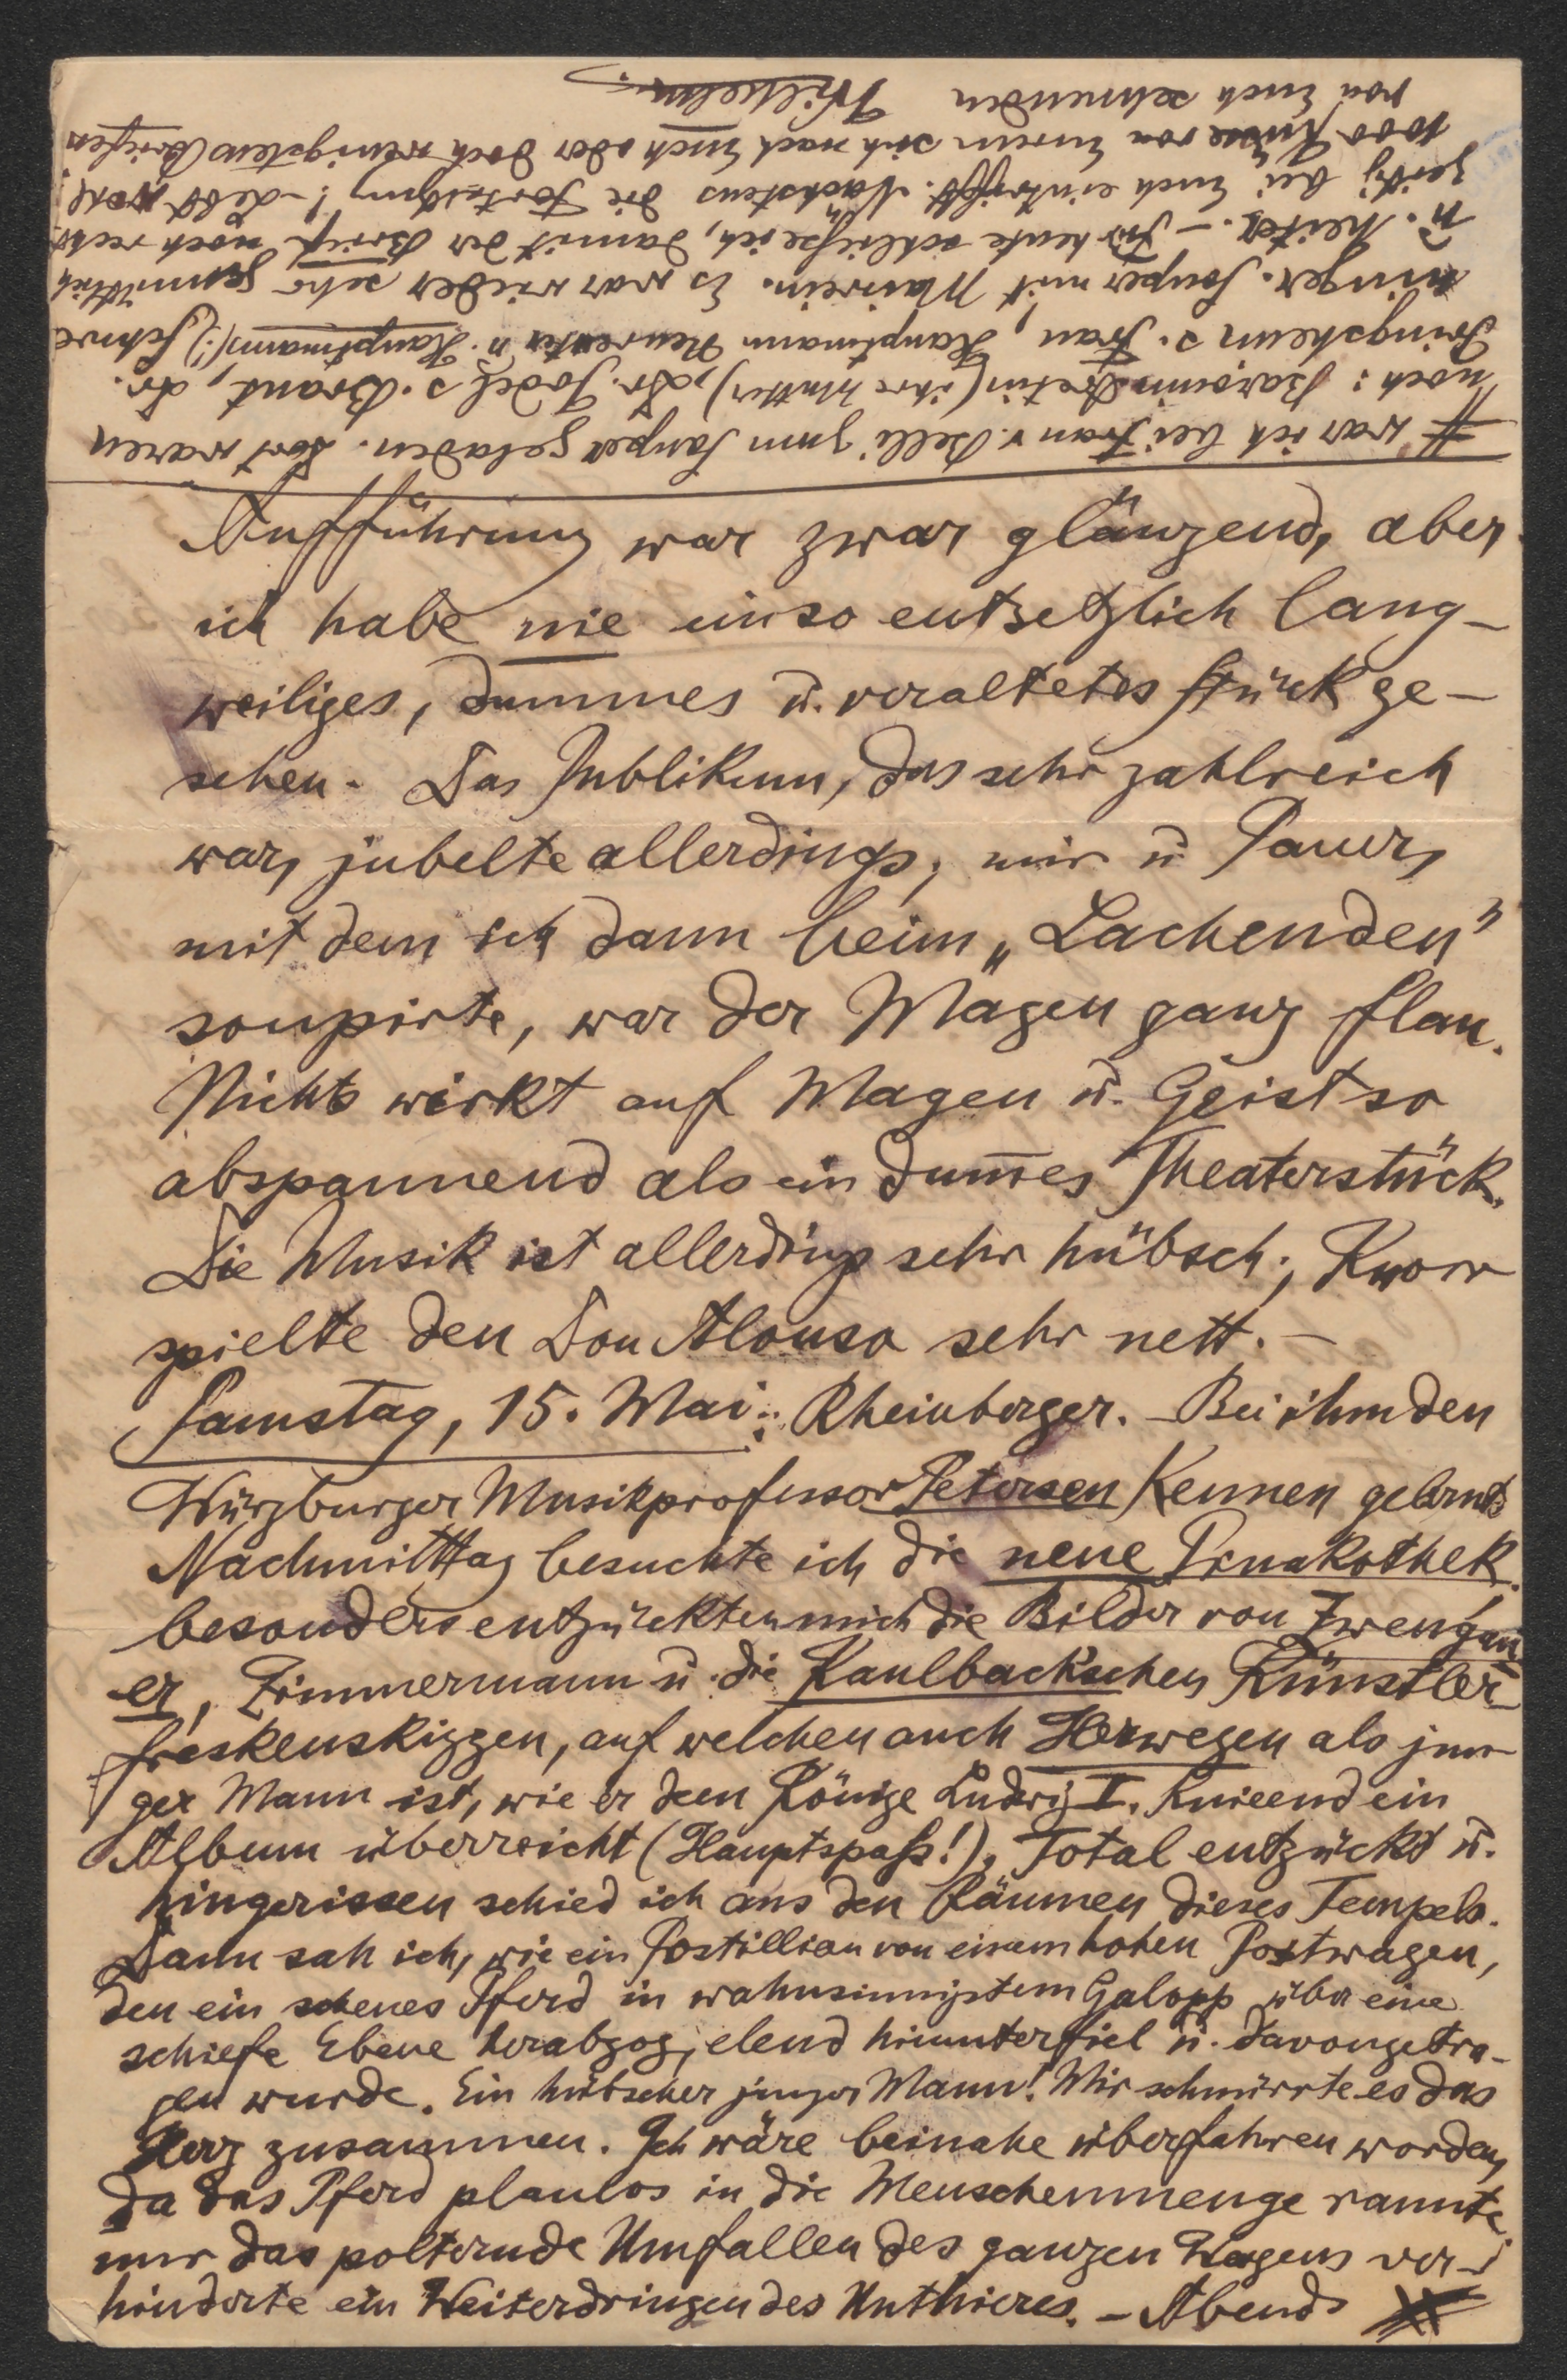 Aufführung war zwar glänzend, aber
ich habe nie ein so entsetzlich lang-
weiliges, dummes u. veraltetes Stück ge-
sehen. Das Publikum, das sehr zahlreich
war, jubelte allerdings; mir u Pauer,
mit dem ich dann beim „Lachenden"
soupirte, war der Magen ganz flau.
Nichts wirkt auf Magen u. Geist so
abspannend als ein dum̄es Theaterstück.
Die Musik ist allerdings sehr hübsch; Knorr
spielte den Don Alonso sehr nett. –
Samstag, 15. Mai: Rheinberger. – Bei ihm den
Würzburger Musikprofessor Petersen kennen gelernt.
Nachmitttag besuchte ich die neue Pinakothek.
besonders entzückten mich die Bilder von Zwengau
er, Zimmermann u. die Kaulbach'schen Künstler
freskenskizzen, auf welchen auch Herwegen als jun
ger Mann ist, wie er dem Könige Ludwig I. knieend ein
Album überreicht (Hauptspaß!). Total entzückt u.
hingerissen schied ich aus den Räumen dieses Tempels.
Dann sah ich, wie ein Postillion von einem hohen Postwagen,
den ein scheues Pferd in wahnsinnigstem Galopp über eine
schiefe Ebene herabzog, elend hinunterfiel u. davongetra-
gen wurde. Ein hübscher junger Mann! Mir schnürrte es das
Herz zusammen. Ich wäre beinahe überfahren worden,
da das Pferd planlos in die Menschenmenge rannte,
nur das polternde Umfallen des ganzen Wagens ver-
hinderte ein Weiterdringen des Unthieres. – Abends #
# war ich bei Frau v. Belli zum Souper geladen. Dort waren
noch: Baronin Aretin (ihre Mutter), Dr. Jodl s. Braut, Dr.
Pringsheim s. Frau, Hauptmann Neureuter u. Hauptmann(!) Schwe
ninger. Souper mit Maiwein. Es war wieder sehr gemütlich
u. heiter. – Für heute schließe ich, damit der Brief noch recht
zeitig bei Euch eintrifft. Nächstens die Fortsetzung! – Lebt wohl
1000 Küsse von Eurem sich nach Euch oder doch wenigstens Briefen
von Euch sehnenden Wilhelm